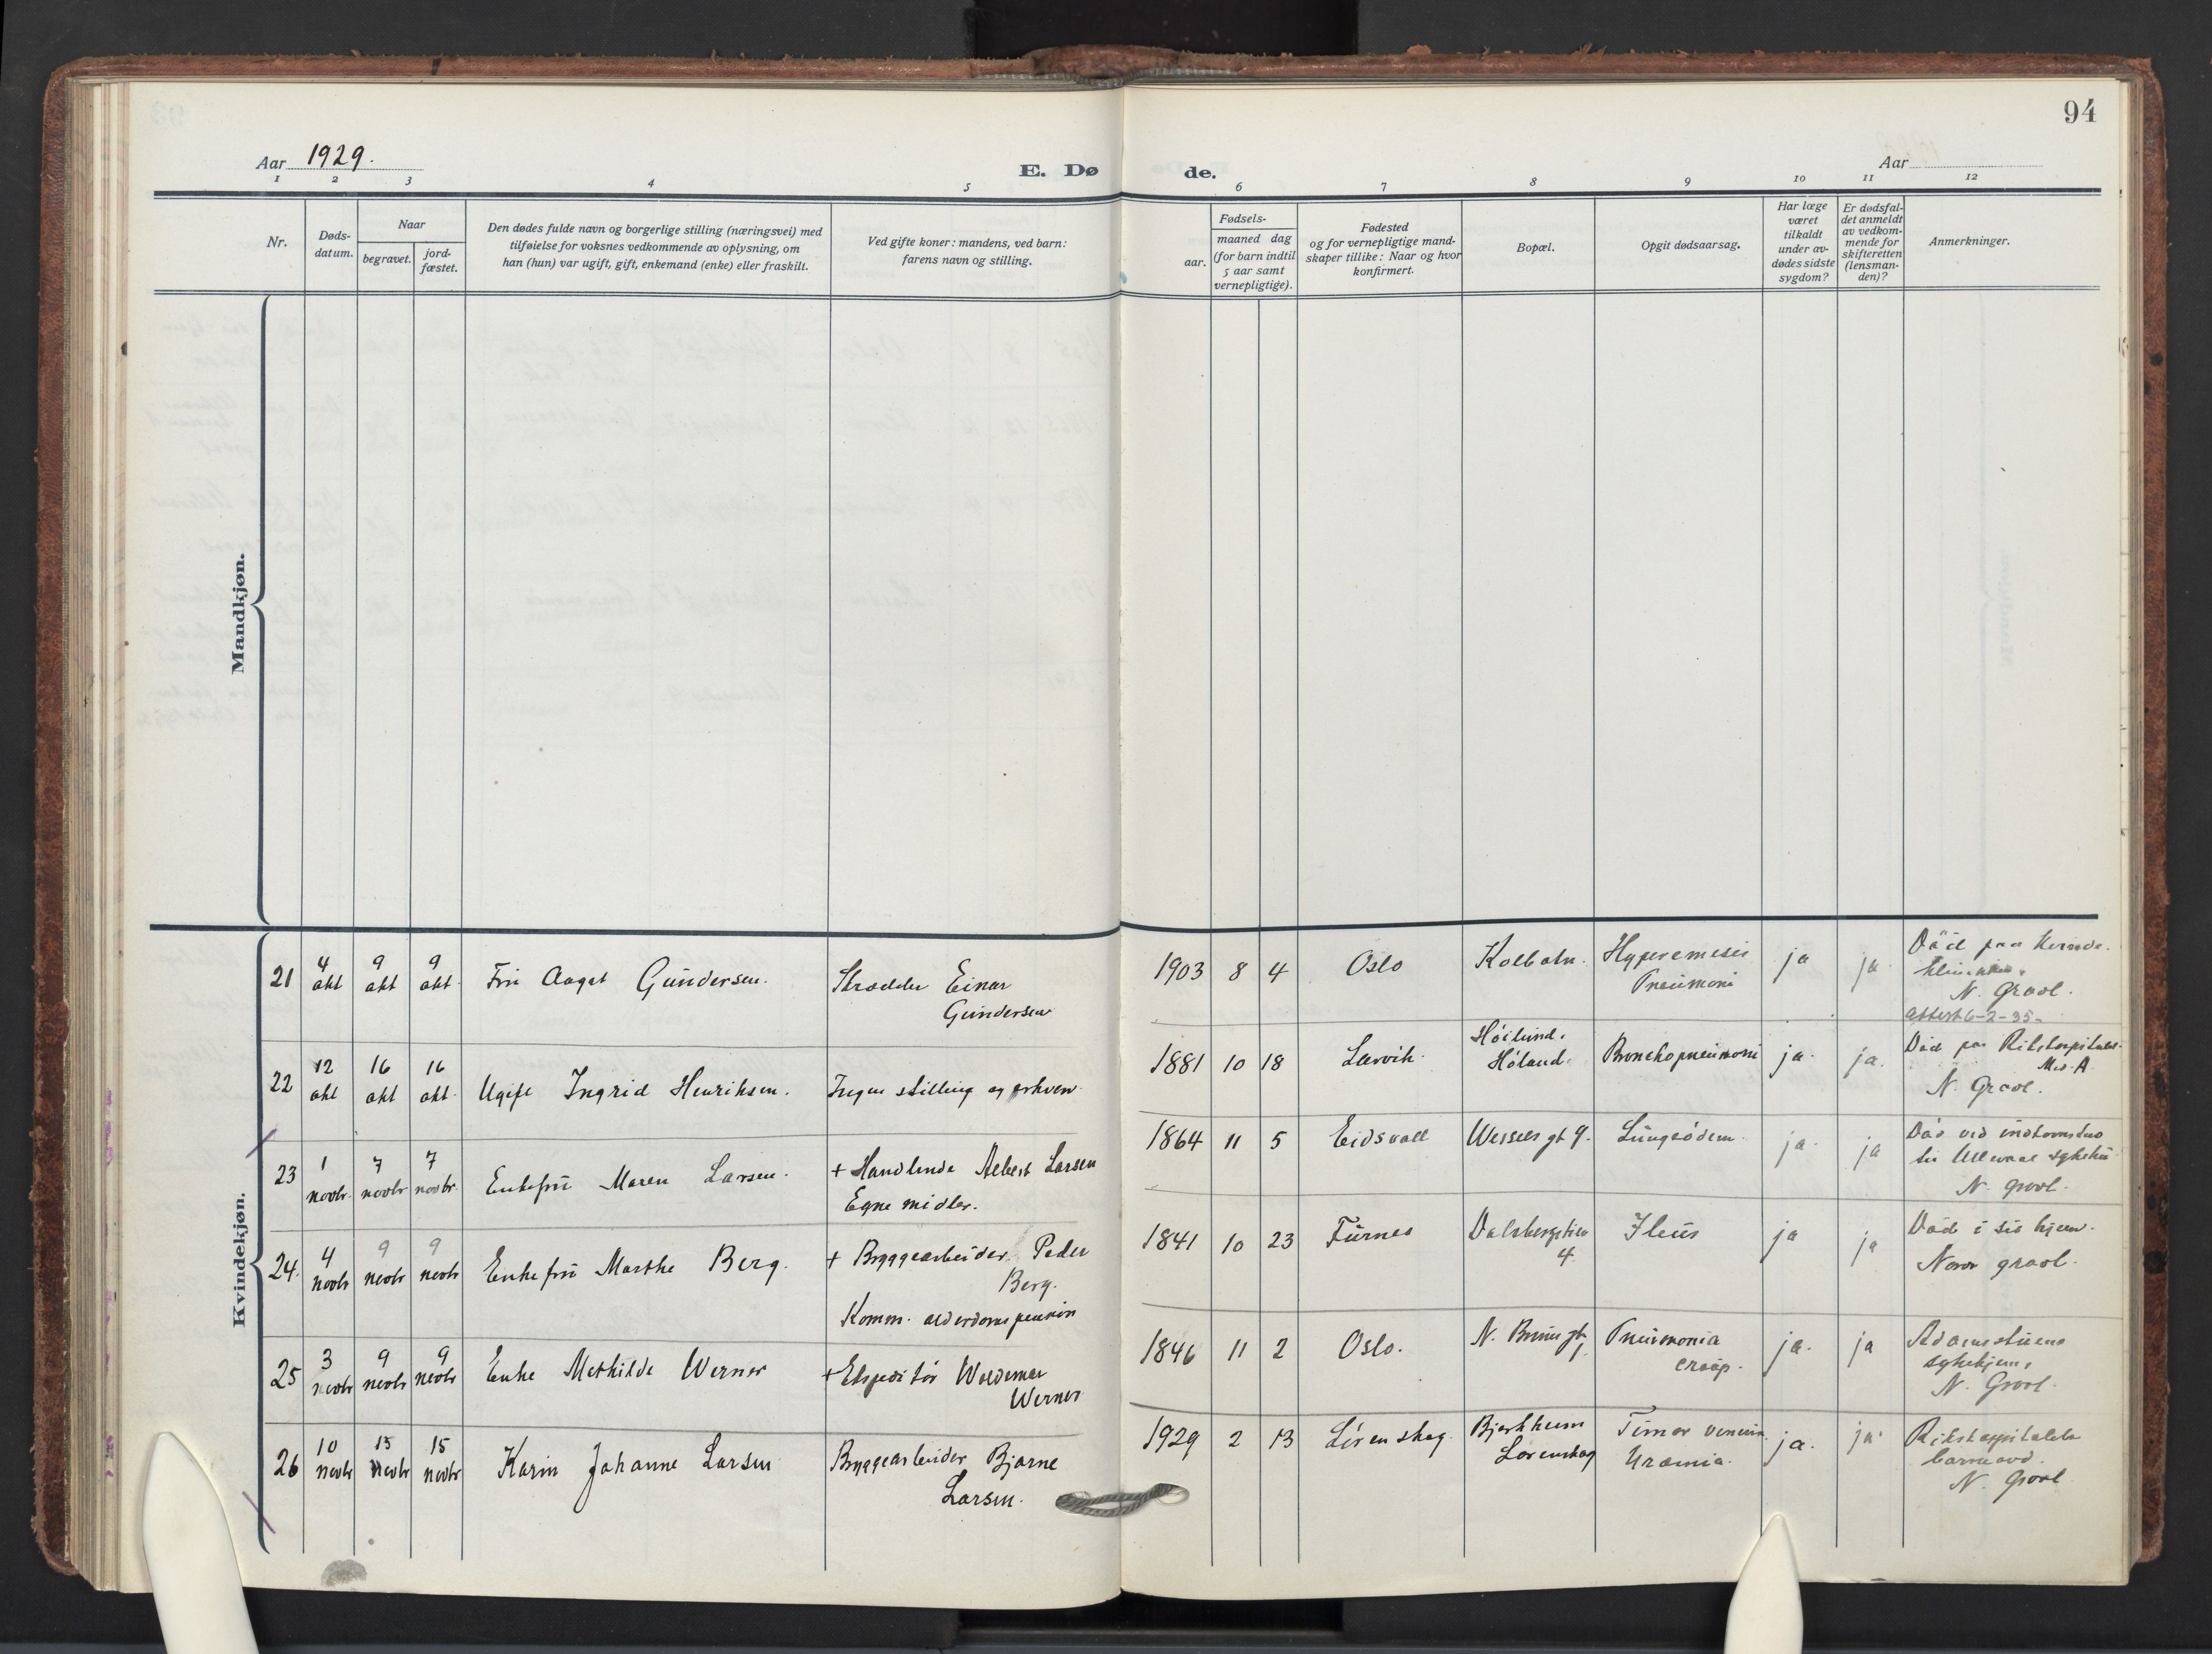 94
Aar 1929.
E. Døde.
Aar
1 2 3 4 5 6 7 8 9 10 11 12
Nr.
Dødsdatum.
Naar
begravet.
jordfæstet.
Den dødes fulde navn og borgerlige stilling (næringsvei) med
tilføielse for voksnes vedkommende av oplysning, om
han (hun) var ugift, gift, enkemand (enke) eller fraskilt.
Ved gifte koner: mandens, ved barn:
farens navn og stilling.
Fødsels-
aar.
maaned dag
(for barn indtil
5 aar samt
vernepligtige).
Fødested
og for vernepligtige mand-
skaper tillike: Naar og hvor
konfirmert.
Bopæl.
Opgit dødsaarsag.
Har læge
været
tilkaldt
under av-
dødes sidste
sygdom?
Er dødsfal-
det anmeldt
av vedkom-
mende for
skifteretten
(lensman-
den)?
Anmerkninger.
Mandkjøn.
Kvindekjøn.
21 4 okt 9 okt 9 okt. Fru Aagot Gundersen. Skrædder Einar
Gundersen
1903 8 4 Oslo Kolbotn. Hyperemesis
Pneumoni
ja ja Död paa Kvinde-
klinikken.
N. Gravl.
attest 6-2-35-
22 12 okt 16 okt 16 okt. Ugift Ingrid Henriksen. Ingen stilling og erhverv.
1881 10 18 Larvik. Höilund.
Höland. Bronchopneumoni ja. ja. Död paa Rikshospitalet.
Med. A.
N. Gravl.
23 1 novbr. 7 novbr 7 novbr. Enkefru Maren Larsen. + Handlende Albert Larsen
Egne midler.
1864 11 5 Eidsvoll Wessels gt 9. Lungeödem. ja. ja
Ullevaal sykehus
N. gravl.
24. 4 novbr 9 novbr 9 novbr Enkefru Marthe Berg. + Byggearbeider Peder
Berg.
Komm. alderdomspension
1841 10 23 Furnes Dalsbergstien
4. Ileus ja ja Död i sit hjem.
Nordr gravl.
25 3 novbr 9 novbr 9 novbr Enke Mathilde Werner + Ekspeditör Woldemar
Werner
1846 11 2 Oslo. N. Bruns gt
1. Pneumonia
croup. ja. ja Adamstuens
sykehjem,
N. Gravl.
26 10 novbr 15 novbr 15 novbr Karin Johanne Larsen Byggearbeider Bjarne
Larsen.
1929 2 13 Lörenskog Bjerkheim
Lörenskog
Uræmia. ja. ja. Rikshospitalets
barneavd.
N. Gravl